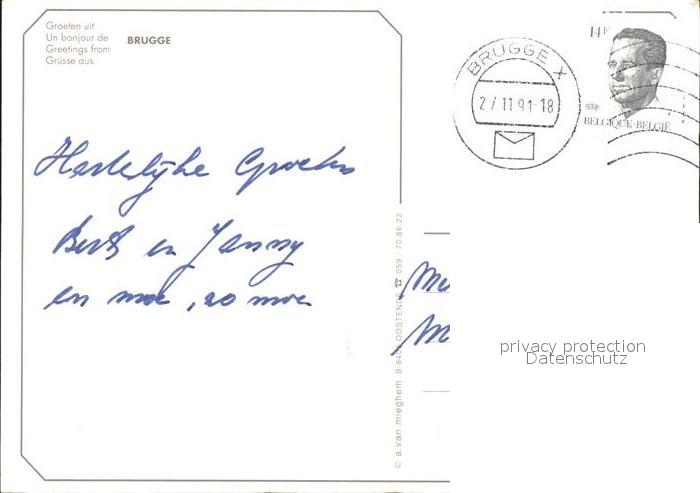 Groeten uit
Un bonjour de
Greetings from
Grüsse aus
BRUGGE
BRUGGE X
2/ 11 91-18
14F
BELGIQUE-BELGIË
Hartelijke Groeten
Berts en Janny
en moe,
© a. van mieghem B-8400 OOSTENDE ☎ 059 / 70.86.22
M
privacy protection
Datenschutz